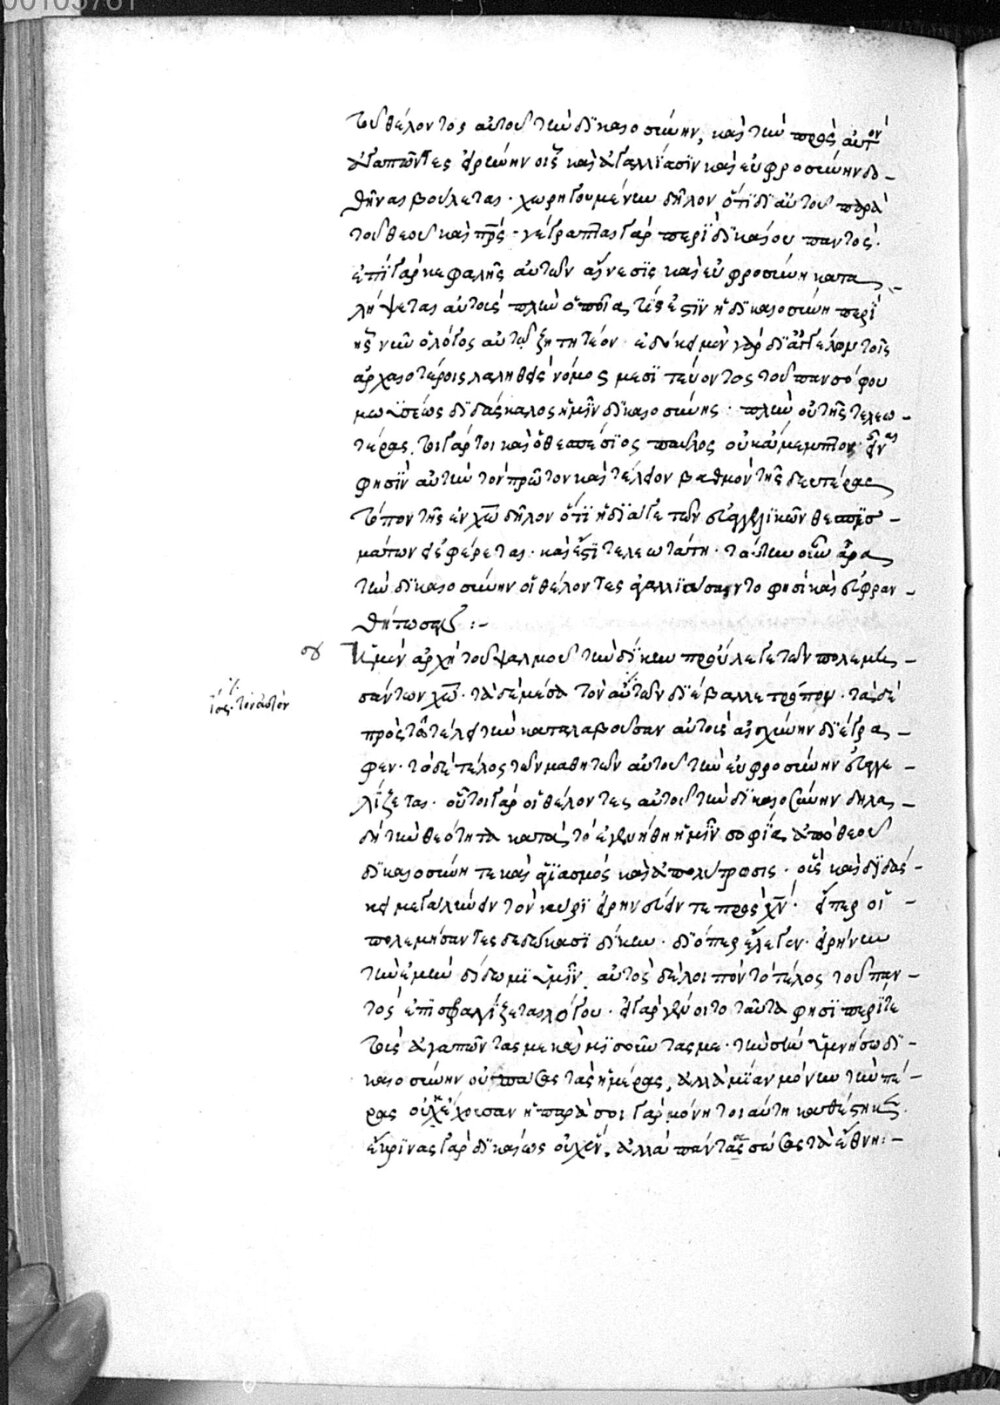 τοὺς θέλοντας αὐτοῦ τὴν δικαιοσύνην, καὶ τὴν πρὸς αὐτὸν
ἀγαπῶντες εἰρήνην οἷς καὶ ἀγαλλίασιν καὶ εὐφροσύνην δο-
θῆναι βούλεται. χορηγουμένην δῆλον ὅτι δι' αὐτοῦ παρὰ
τοῦ θεοῦ καὶ πρς. γέγραπται γὰρ περὶ δικαίου παντός.
ἐπὶ γὰρ κεφαλῆς αὐτῶν αἴνεσις καὶ εὐφροσύνη κατα
λήψεται αὐτούς πλὴν ὁποία τίς ἐστιν ἡ δικαιοσύνη περὶ
ἧς νῦν ὁ λόγος αὐτῷ ζητητέον. ἐδόθη μὲν γὰρ δι' ἀγγέλων τοῖς
ἀρχαιοτέροις λαληθεὶς νόμος μεσιτεύοντος τοῦ πανσόφου
μωϋσέως διδάσκαλος ἡμῖν δικαιοσύνης. πλὴν οὐ τῆς τελεω-
τέρας. τί γάρ τοι καὶ ὁ θεσπέσιος παῦλος οὐκ ἄμεμπτον εἶναι
φησὶν αὐτὴν τὸν πρῶτον καὶ τέλειον βαθμὸν τῆς δευτέρας
τόπον τῆς ἐν χω δῆλον ὅτι ἡ διά γε τῶν εὐαγγελικῶν θεσπισ-
μάτων εἰσφέρεται. καὶ ἔστι τελεωτάτη. ταύτην οὖν ἄρα
τὴν δικαιοσύνην οἱ θέλοντες ἀγαλλιάσαιντο φησὶ καὶ εὐφραν-
θήτωσαν :-
Ἡ μὲν ἀρχὴ τοῦ ψαλμοῦ τὴν δίκην προύλεγε τῶν πολεμη-
σάντων χω. τὰ δὲ μέσα τὸν αὐτῶν διέβαλλε τρόπον. τὰ δὲ
ἴσως. τὸν αὐτόν
πρὸς τὰ τέλη τὴν καταλαβοῦσαν αὐτοὺς αἰσχύνην διέγρα-
φεν. τὸ δὲ τέλος τῶν μαθητῶν αὐτοῦ τὴν εὐφροσύνην εὐαγγε-
λίζεται. οὗτοι γὰρ οἱ θέλοντες αὐτοῦ τὴν δικαιοσύνην δηλα-
δὴ τὴν θεότητα κατὰ τὸ ἐγενήθη ἡμῖν σοφία ἀπὸ θεοῦ
δικαιοσύνη τε καὶ ἁγιασμός καὶ ἀπολύτρωσις. οἷς καὶ διδάσ-
κει μεγαλύνειν τὸν κύριον εἰρηνεύειν τε πρὸς χν. ᾧπερ οἱ
πολεμήσαντες δεδώκασι δίκην. διόπερ ἔλεγεν. εἰρήνην
τὴν ἐμὴν δίδωμι ὑμῖν. αὐτὸς δὲ λοιπὸν τὸ τέλος τοῦ παν-
τὸς ἐπισφραγίζεται λόγου. εἰ γὰρ γένοιτο ταῦτα φησὶ περί τε
τοὺς ἀγαπῶντας με καὶ μισοῦντας με. τὴν σὴν ὑμνήσω δι-
καιοσύνην οὐ πάσας τὰς ἡμέρας, ἀλλὰ μίαν μόνην τὴν
ἔκρινας γὰρ δικαίως οὐχ ἕν, ἀλλὰ πάντα τὰ ἔθνη :-